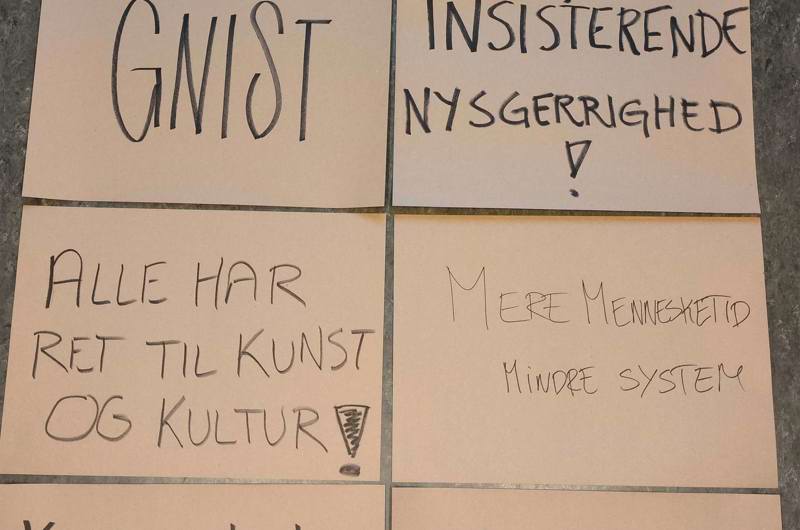 GNIST
INSISTERENDE
NYSGERRIGHED
!
ALLE HAR
RET TIL KUNST
OG KULTUR!
MERE MENNESKETID
MINDRE SYSTEM